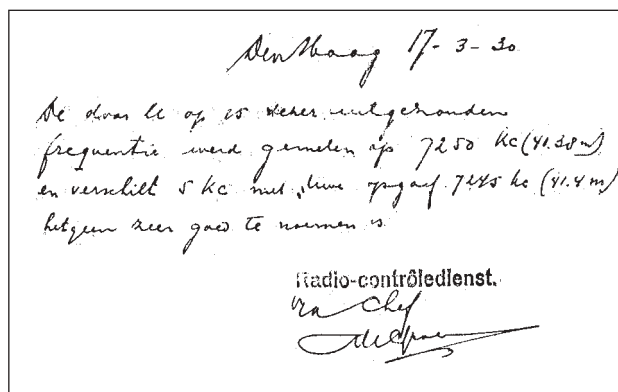 Den Haag 17-3-30
De door U op 15 dezer uitgezonden
frequentie werd gemeten op 7250 Kc (41.38 m)
en verschilt 5 Kc met Uwe opgaaf 7245 kc (41.4 m)
hetgeen zeer goed te noemen is
Radio-contrôledienst.
Chef